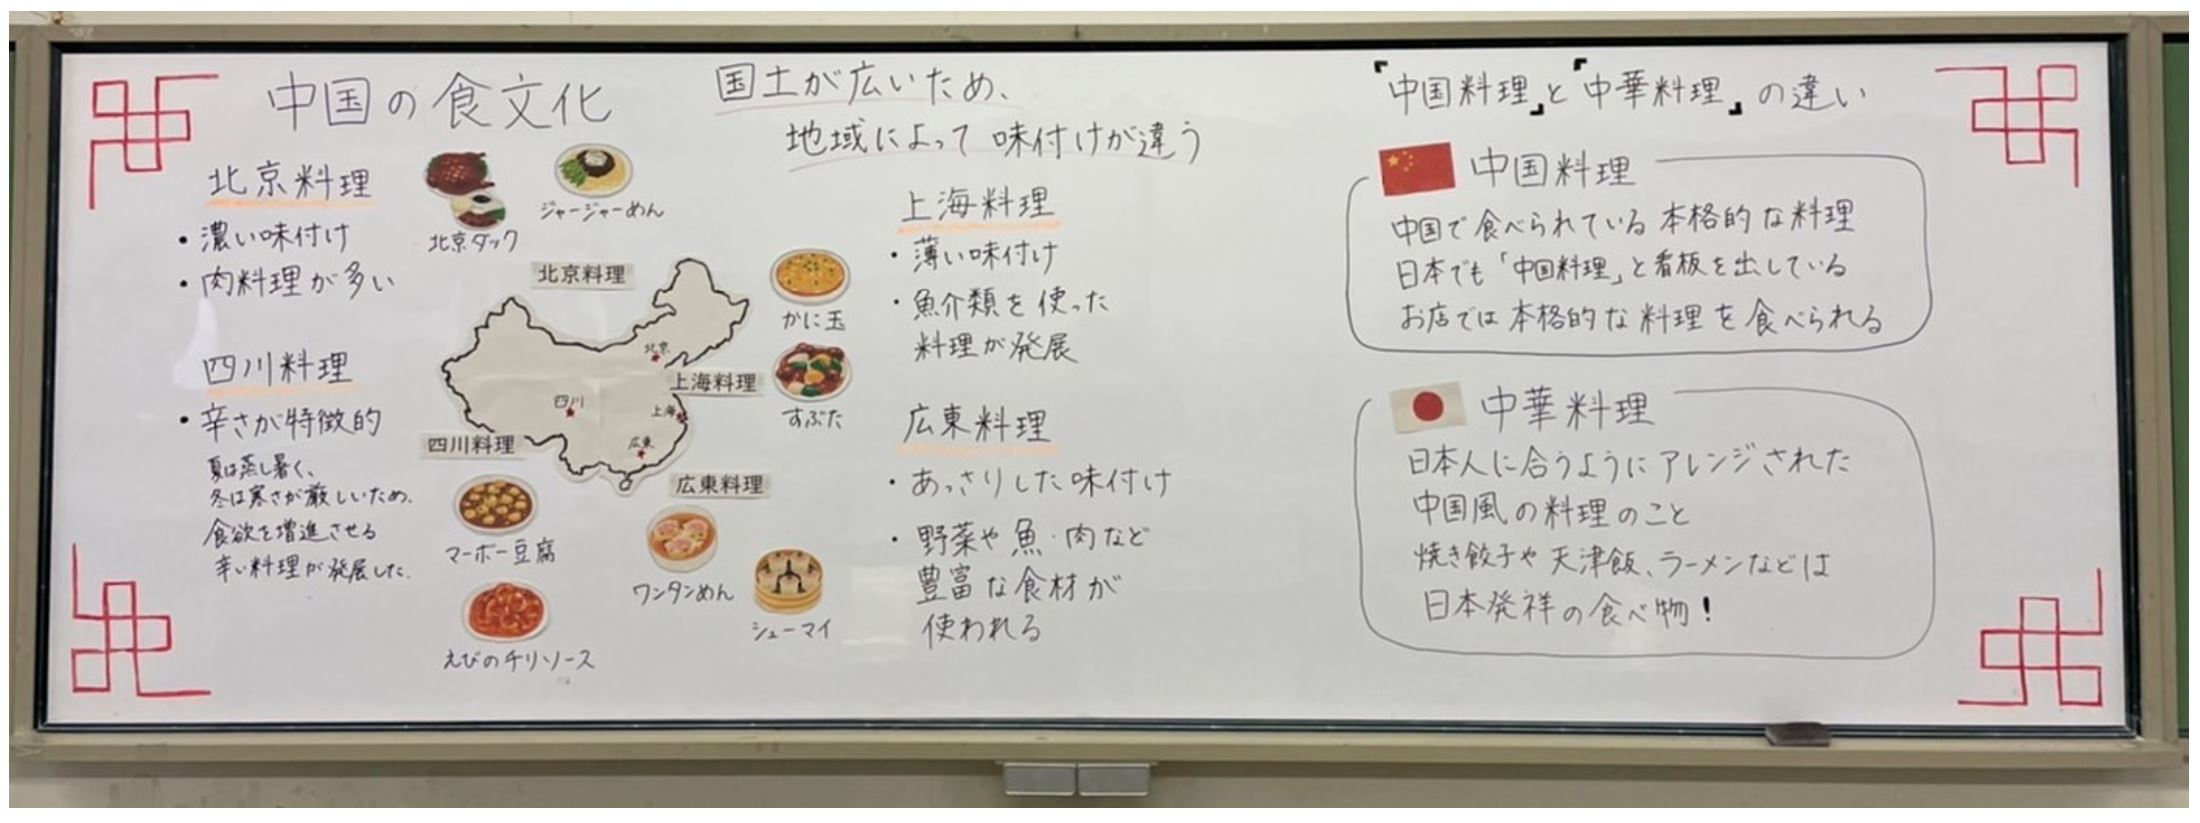 中国の食文化
国土が広いため、
地域によって味付けが違う
北京料理
・濃い味付け
・肉料理が多い
北京ダック
ジャージャーめん
四川料理
・辛さが特徴的
夏は蒸し暑く、
冬は寒さが厳しいため、
食欲を増進させる
辛い料理が発展した。
北京料理
北京
四川
上海
広東
上海料理
四川料理
広東料理
かに玉
すぶた
マーボー豆腐
えびのチリソース
ワンタンめん
シューマイ
上海料理
・薄い味付け
・魚介類を使った
料理が発展
広東料理
・あっさりした味付け
・野菜や魚・肉など
豊富な食材が
使われる
『中国料理』と『中華料理』の違い
中国料理
中国で食べられている本格的な料理
日本でも「中国料理」と看板を出している
お店では本格的な料理を食べられる
中華料理
日本人に合うようにアレンジされた
中国風の料理のこと
焼き餃子や天津飯、ラーメンなどは
日本発祥の食べ物!